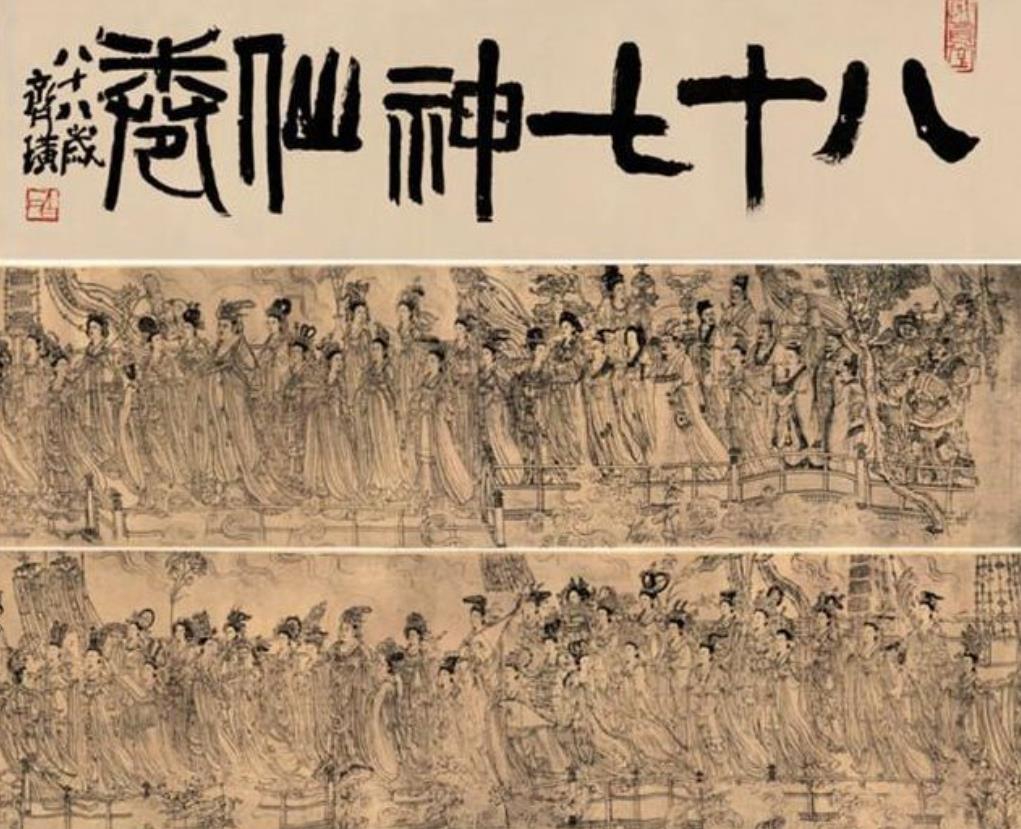 八十七神仙卷
八十八歲
齊璜